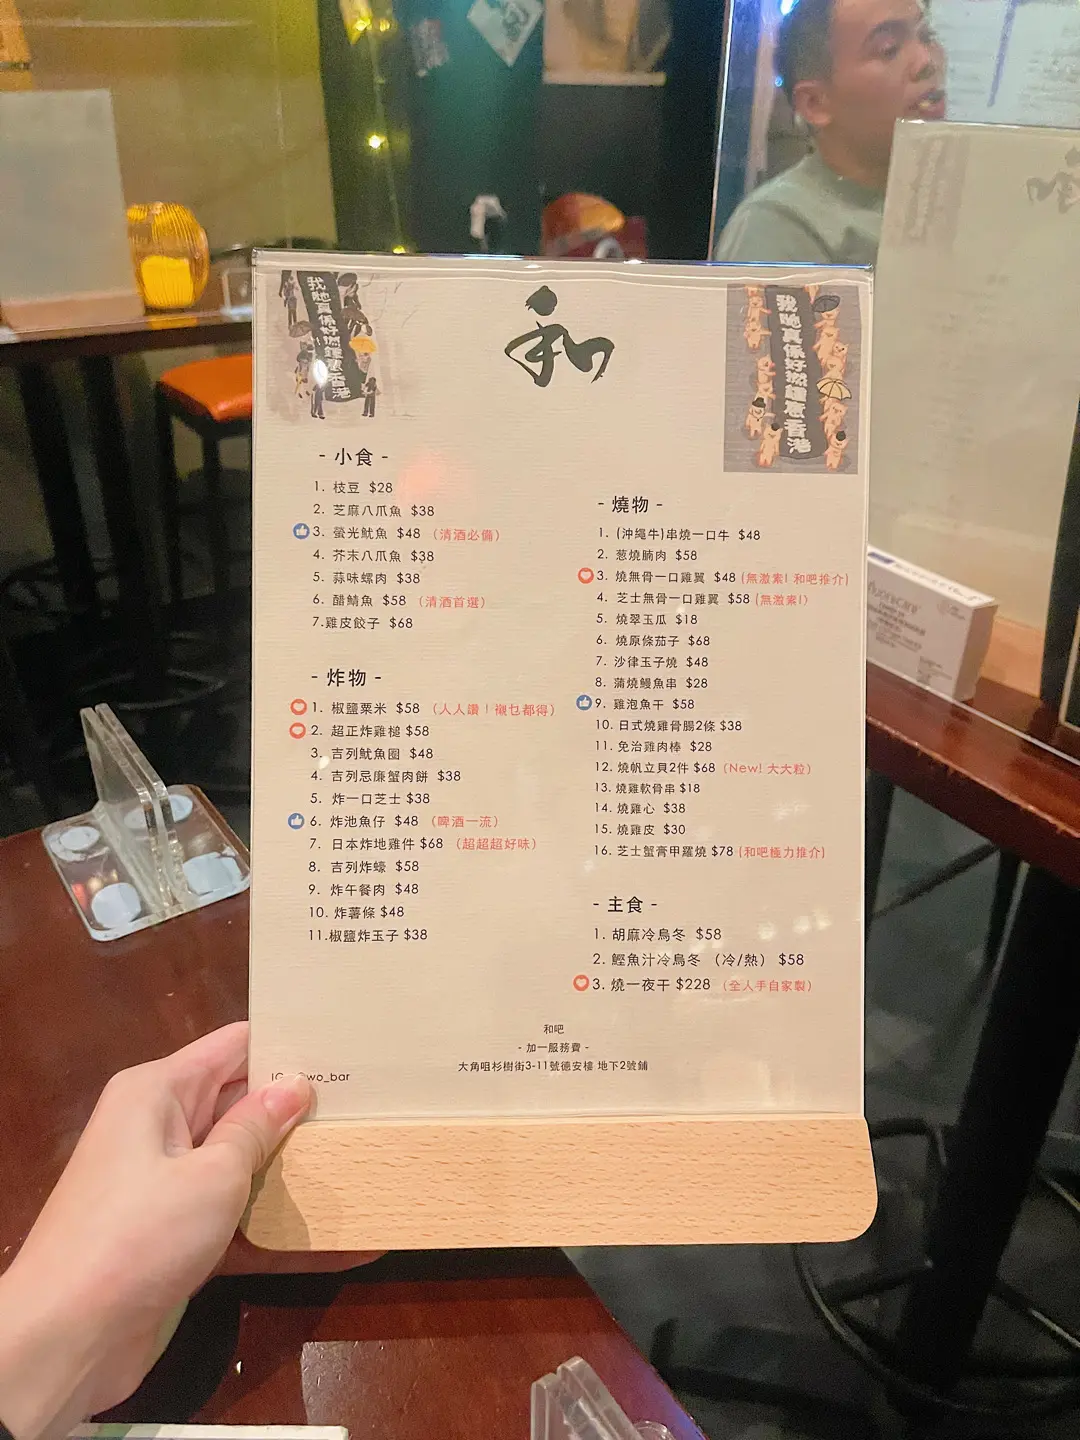 我哋真係好撚鍾意香港
和
我哋真係好撚鍾意香港
- 小食 -
1. 枝豆 $28
2. 芝麻八爪魚 $38
3. 螢光魷魚 $48 （清酒必備）
4. 芥末八爪魚 $38
5. 蒜味螺肉 $38
6. 醋鯖魚 $58 （清酒首選）
7.雞皮餃子 $68
- 炸物 -
1. 椒鹽粟米 $58 （人人讚！襯乜都得）
2. 超正炸雞槌 $58
3. 吉列魷魚圈 $48
4. 吉列忌廉蟹肉餅 $38
5. 炸一口芝士 $38
6. 炸池魚仔 $48 （啤酒一流）
7. 日本炸地雞件 $68 （超超超好味）
8. 吉列炸蠔 $58
9. 炸午餐肉 $48
10. 炸薯條 $48
11.椒鹽炸玉子 $38
- 燒物 -
1. (沖繩牛)串燒一口牛 $48
2. 葱燒腩肉 $58
3. 燒無骨一口雞翼 $48 (無激素! 和吧推介)
4. 芝士無骨一口雞翼 $58 (無激素!)
5. 燒翠玉瓜 $18
6. 燒原條茄子 $68
7. 沙律玉子燒 $48
8. 蒲燒鰻魚串 $28
9. 雞泡魚干 $58
10. 日式燒雞骨腸2條 $38
11. 免治雞肉棒 $28
12. 燒帆立貝2件 $68 (New! 大大粒)
13. 燒雞軟骨串 $18
14. 燒雞心 $38
15. 燒雞皮 $30
16. 芝士蟹膏甲羅燒 $78 (和吧極力推介)
- 主食 -
1. 胡麻冷烏冬 $58
2. 鰹魚汁冷烏冬 （冷/熱） $58
3. 燒一夜干 $228 （全人手自家製）
和吧
- 加一服務費 -
大角咀杉樹街3-11號德安樓 地下2號舖
wo_bar